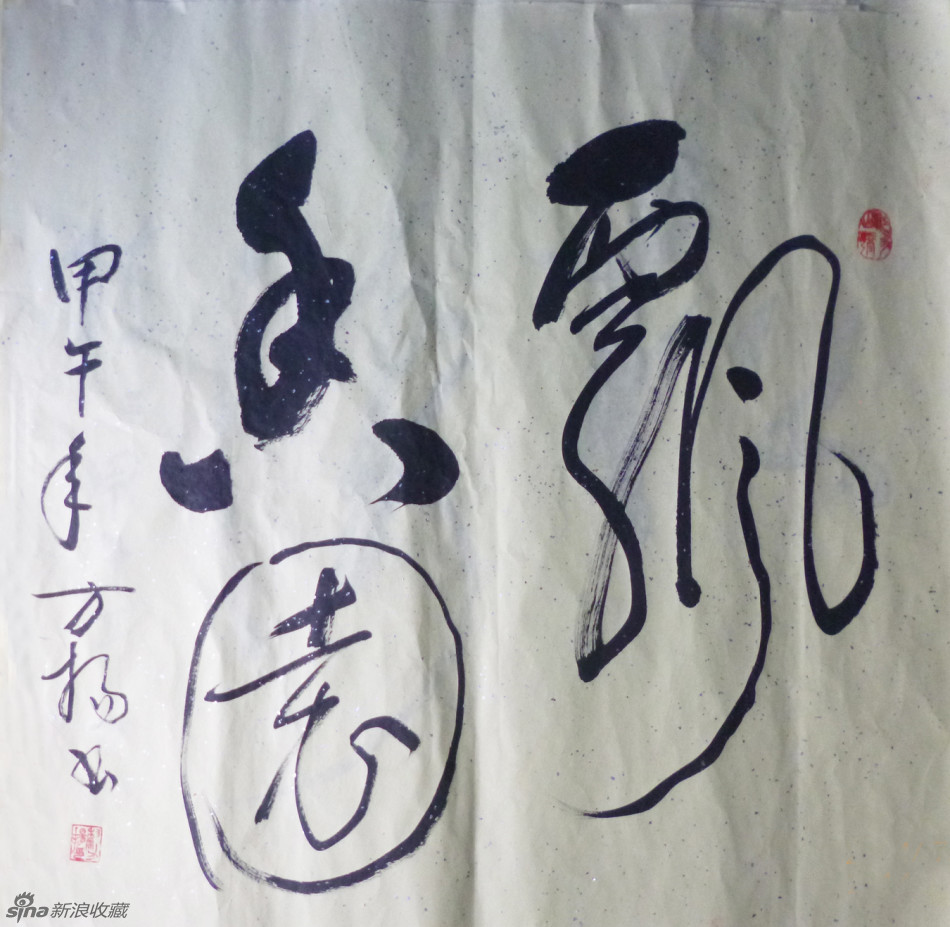 飘
香園
甲午年方揚书
sina新浪收藏